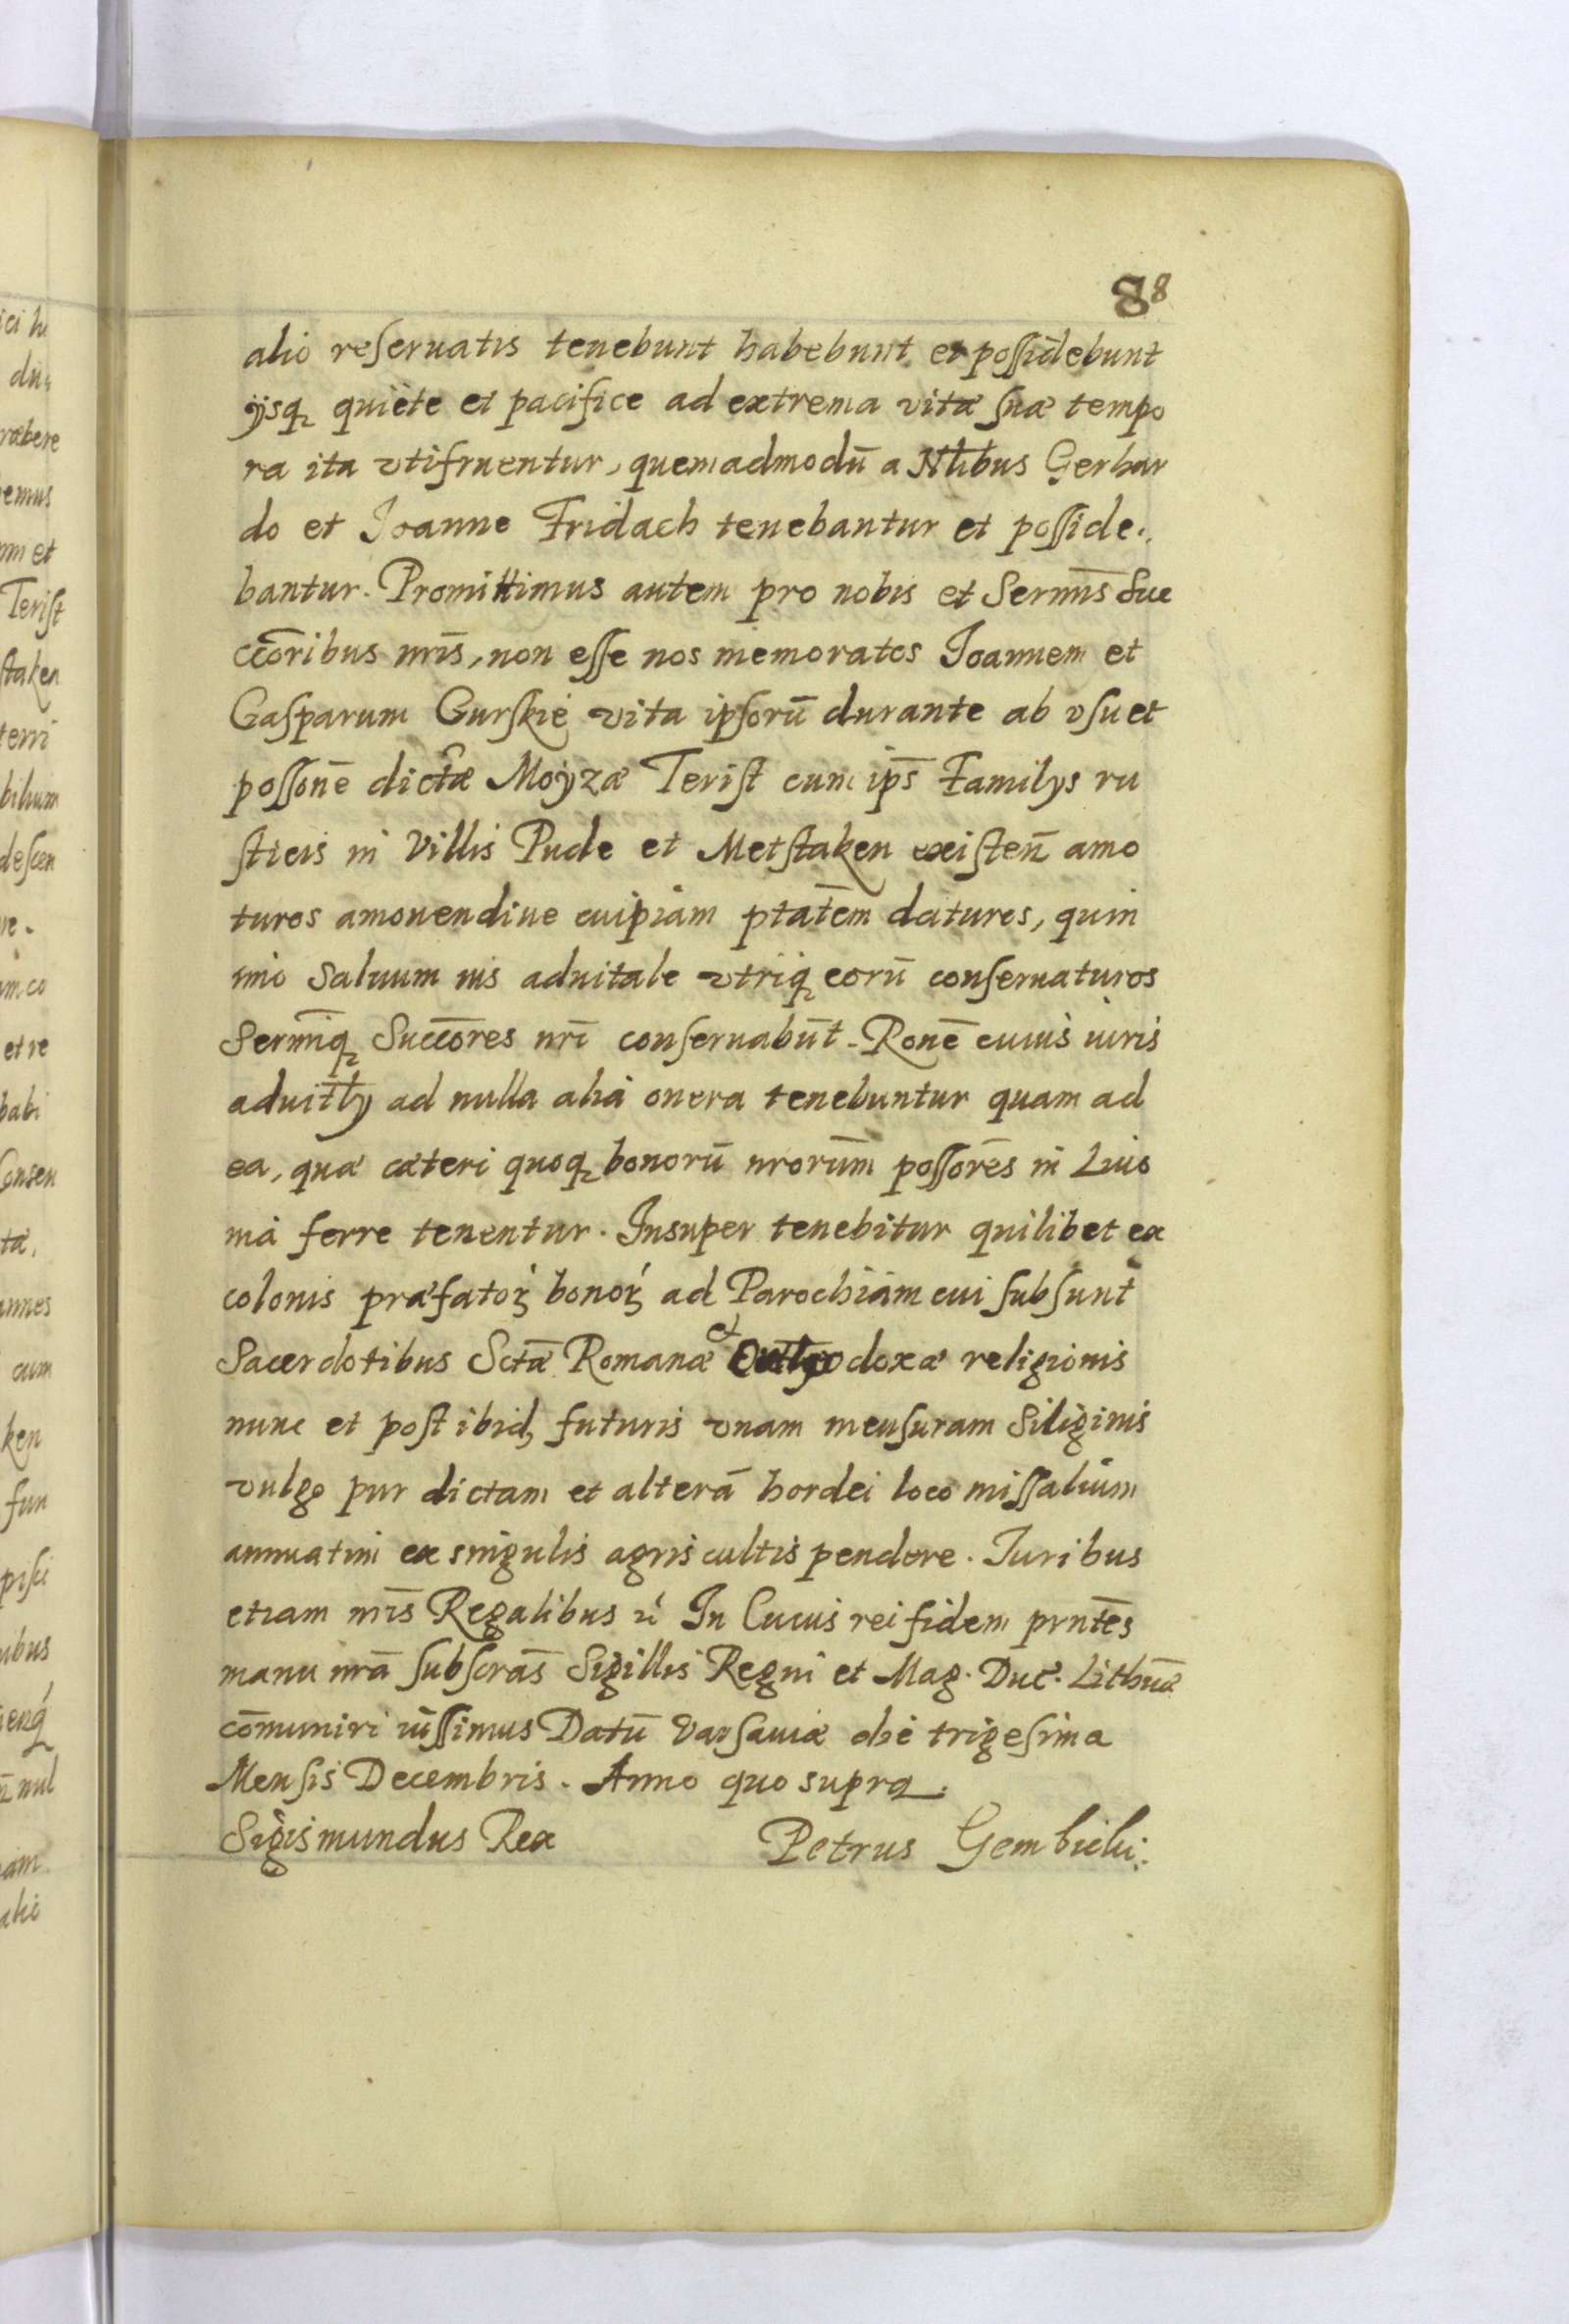 88
alio reseruatis tenebunt habebunt et possidebunt
ijsq; quiete et pacifice ad extrema vitæ suæ tempo
ra ita vtifruentur, quemadmodū a Nlibus Gerhar
do et Joanne Fridach tenebantur et posside.
bantur. Promittimus autem pro nobis et Sermis̄ Suc
ccōribus nrīs, non esse nos memoratos Joannem et
Gasparum Gurskie vita ipsorū durante ab vsu et
possonē dictæ Moyzæ Terist cum ips̄ Familys ru
sticis in Villis Pude et Metstaken existen̄ amo
turos amouendiue cuipiam ptātem daturos, quin
imo Saluum ius aduitale vtriq; eorū conseruaturos
Sermiq̄; Succōres nrī conseruabūt. Ronē cuius iuris
aduitl̄y ad nulla alia onera tenebuntur quam ad
ea, quæ cæteri quoq; bonorū nrorūm possorēs in Liuo
nia ferre tenentur. Insuper tenebitur quilibet ex
colonis præfatoꝝ bonoꝝ ad Parochiam cui subsunt
Sacerdotibus Sctæ Romanæ et Orthodoxæ religionis
nunc et post ibid, futuris vnam mensuram Siliginis
vulgo pur dictam et alterā hordei loco missalium
annuatim ex singulis agris cultis pendere. Iuribus
etiam nrīs Regalibus &c In Cuius rei fidem prntēs
manu nrā subscras̄ Sigillis Regni et Mag. Duc. Lithuæ
cōmuniri iussimus Datū Varsauiæ die trigesima
Mensis Decembris. Anno quo supra.
Sigismundus Rex Petrus Gembicki: